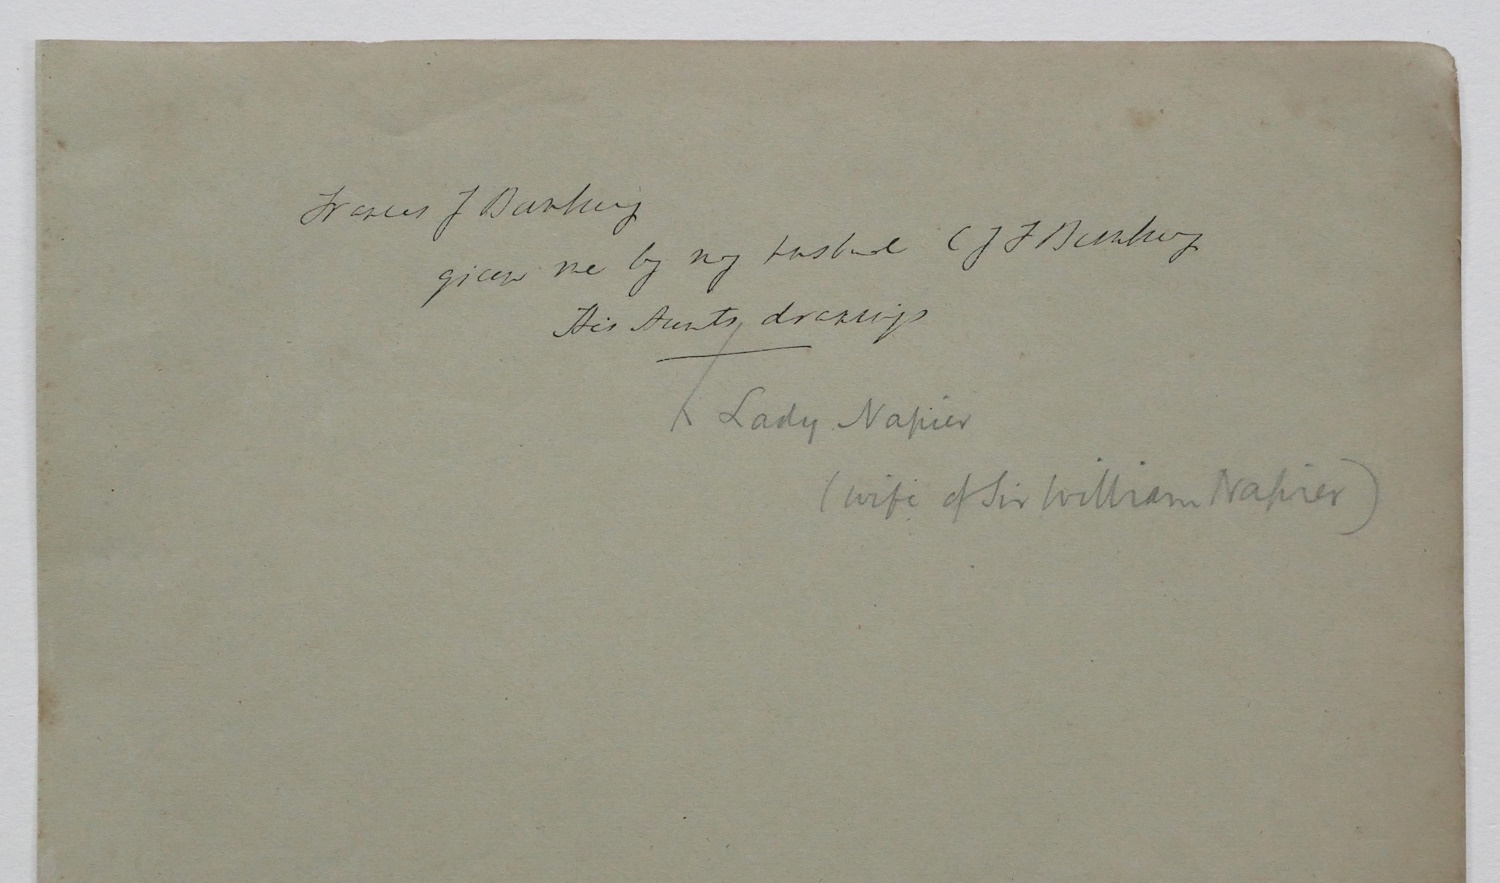 Frances J Bunbury
given me by my husband C J F Bunbury
His Aunts drawings
Lady Napier
(wife of Sir William Napier)